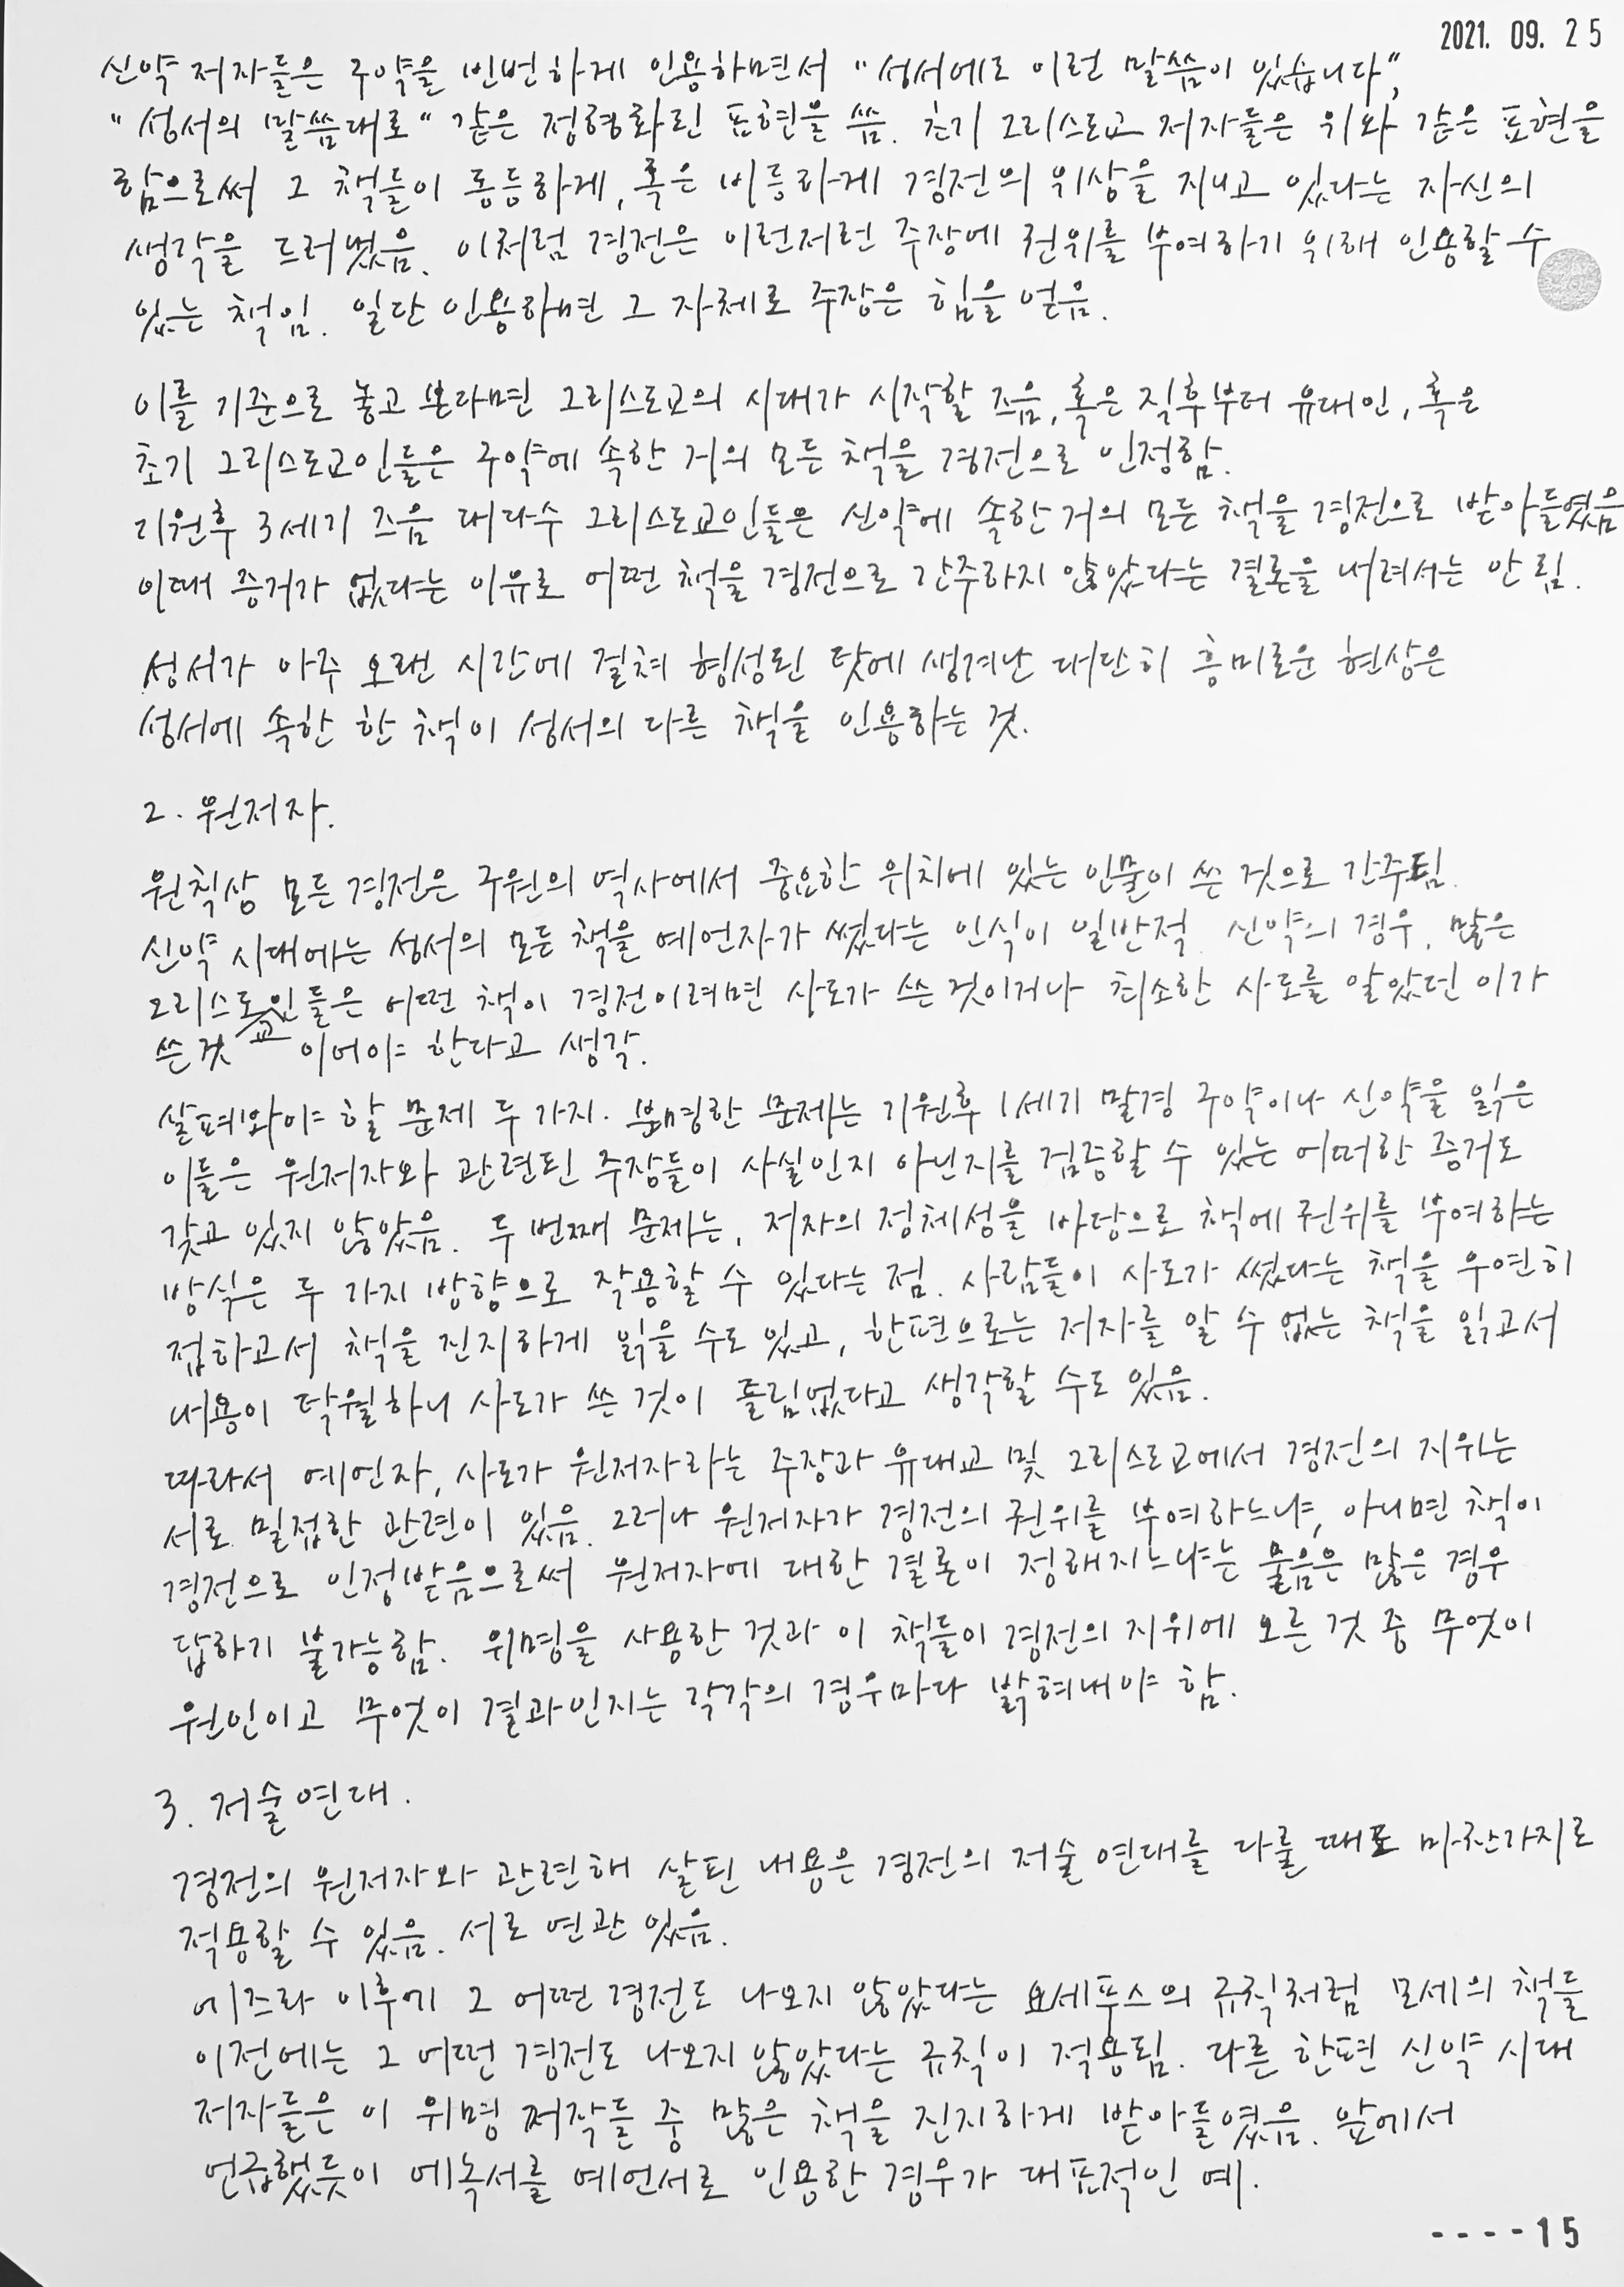 2021. 09. 25
신약 저자들은 구약을 빈번하게 인용하면서 "성서에도 이런 말씀이 있습니다",
"성서의 말씀대로" 같은 정형화된 표현을 씀. 초기 그리스도교 저자들은 위와 같은 표현을
함으로써 그 책들이 동등하게, 혹은 비등하게 경전의 위상을 지니고 있다는 자신의
생각을 드러냈음. 이처럼 경전은 이런저런 주장에 권위를 부여하기 위해 인용할 수
있는 책임. 일단 인용하면 그 자체로 주장은 힘을 얻음.
이를 기준으로 놓고 본다면 그리스도교의 시대가 시작할 즈음, 혹은 직후부터 유대인, 혹은
초기 그리스도교인들은 구약에 속한 거의 모든 책을 경전으로 인정함.
기원후 3세기 즈음 대다수 그리스도교인들은 신약에 속한 거의 모든 책을 경전으로 받아들였음
이때 증거가 없다는 이유로 어떤 책을 경전으로 간주하지 않았다는 결론을 내려서는 안 됨.
성서가 아주 오랜 시간에 걸쳐 형성된 탓에 생겨난 대단히 흥미로운 현상은
성서에 속한 한 책이 성서의 다른 책을 인용하는 것.
2. 원저자.
원칙상 모든 경전은 구원의 역사에서 중요한 위치에 있는 인물이 쓴 것으로 간주됨.
신약 시대에는 성서의 모든 책을 예언자가 썼다는 인식이 일반적. 신약의 경우, 많은
그리스도교인들은 어떤 책이 경전이려면 사도가 쓴 것이거나 최소한 사도를 알았던 이가
쓴 것 이어야 한다고 생각.
살펴봐야 할 문제 두 가지. 분명한 문제는 기원후 1세기 말경 구약이나 신약을 읽은
이들은 원저자와 관련된 주장들이 사실인지 아닌지를 검증할 수 있는 어떠한 증거도
갖고 있지 않았음. 두 번째 문제는, 저자의 정체성을 바탕으로 책에 권위를 부여하는
방식은 두 가지 방향으로 작용할 수 있다는 점. 사람들이 사도가 썼다는 책을 우연히
접하고서 책을 진지하게 읽을 수도 있고, 한편으로는 저자를 알 수 없는 책을 읽고서
내용이 탁월하니 사도가 쓴 것이 틀림없다고 생각할 수도 있음.
따라서 예언자, 사도가 원저자라는 주장과 유대교 및 그리스도교에서 경전의 지위는
서로 밀접한 관련이 있음. 그러나 원저자가 경전의 권위를 부여하느냐, 아니면 책이
경전으로 인정받음으로써 원저자에 대한 결론이 정해지느냐는 물음은 많은 경우
답하기 불가능함. 위명을 사용한 것과 이 책들이 경전의 지위에 오른 것 중 무엇이
원인이고 무엇이 결과인지는 각각의 경우마다 밝혀내야 함.
3. 저술연대.
경전의 원저자와 관련해 살핀 내용은 경전의 저술 연대를 다룰 때도 마찬가지로
적용할 수 있음. 서로 연관 있음.
에즈라 이후에 그 어떤 경전도 나오지 않았다는 요세푸스의 규칙처럼 모세의 책들
이전에는 그 어떤 경전도 나오지 않았다는 규칙이 적용됨. 다른 한편 신약 시대
저자들은 이 위명 저작들 중 많은 책을 진지하게 받아들였음. 앞에서
언급했듯이 에녹서를 예언서로 인용한 경우가 대표적인 예.
----15